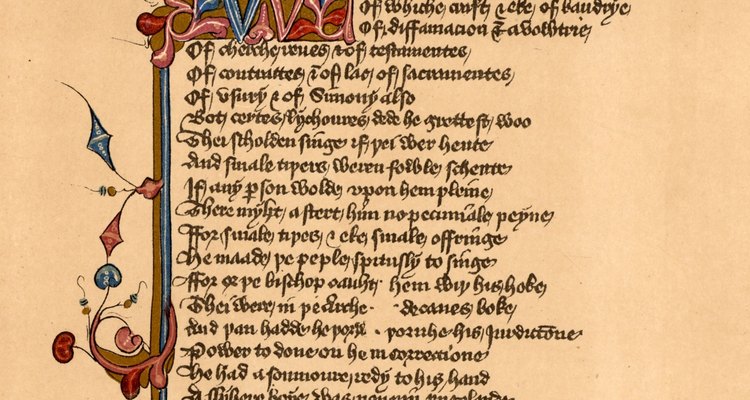 Of whiche craft / & eke / of baudrye
Of / diffamacion / & avowtrie /
Of / cherche reues / & of testamentes
Of / contractes / & of lac / of sacramentes /
Of / vsury / & of Simony also
Bot certes / lychoures / dede he grettest / woo
Thei scholden singe / if þei wer hente /
And smale tiþers / weren fowble / schente
If any persoun wolde / vpon hem pleine /
There myht / astert / him no pecunial peyne
Ffor smale tiþes / & eke / smale offringe /
He maade / þe peple / spitusly to singe
Ffor or þe bischop cauht / hem wiþ his hoke /
Thei were / in þe Arche decanes boke /
And þan hadde / he þorw þoruhe his Iurdictione
Power to done on hem correctione
He had a somnoure / redy to his hand